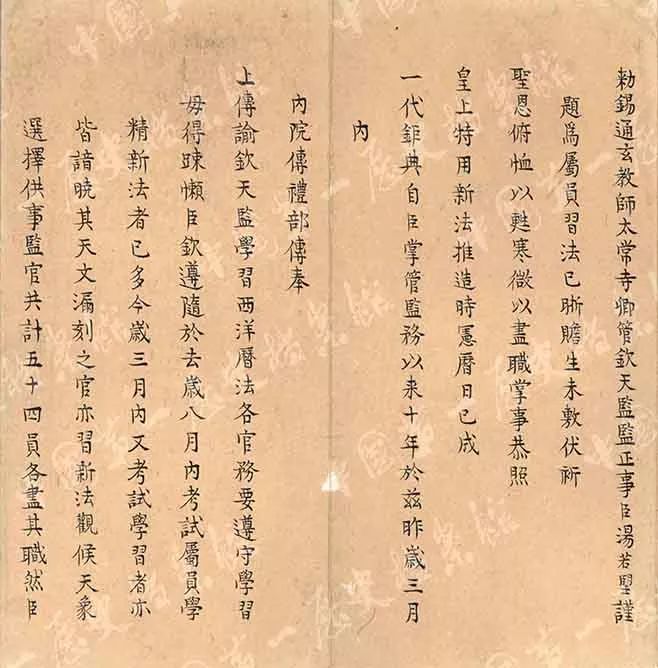 勑錫通玄教師太常寺卿管欽天監監正事臣湯若望謹
題爲屬員習法已晰贍生未敷伏祈
聖恩俯恤以甦寒微以盡職掌事恭照
皇上特用新法推造時憲曆日已成
一代鉅典自臣掌管監務以來十年於兹昨歲三月
內
內院傳禮部傳奉
上傳諭欽天監學習西洋曆法各官務要遵守學習
毋得踈懶臣欽遵隨於去歲八月內考試屬員學
精新法者已多今歲三月內又考試學習者亦
皆諳曉其天文漏刻之官亦習新法觀候天象
選擇供事監官共計五十四員各盡其職然臣